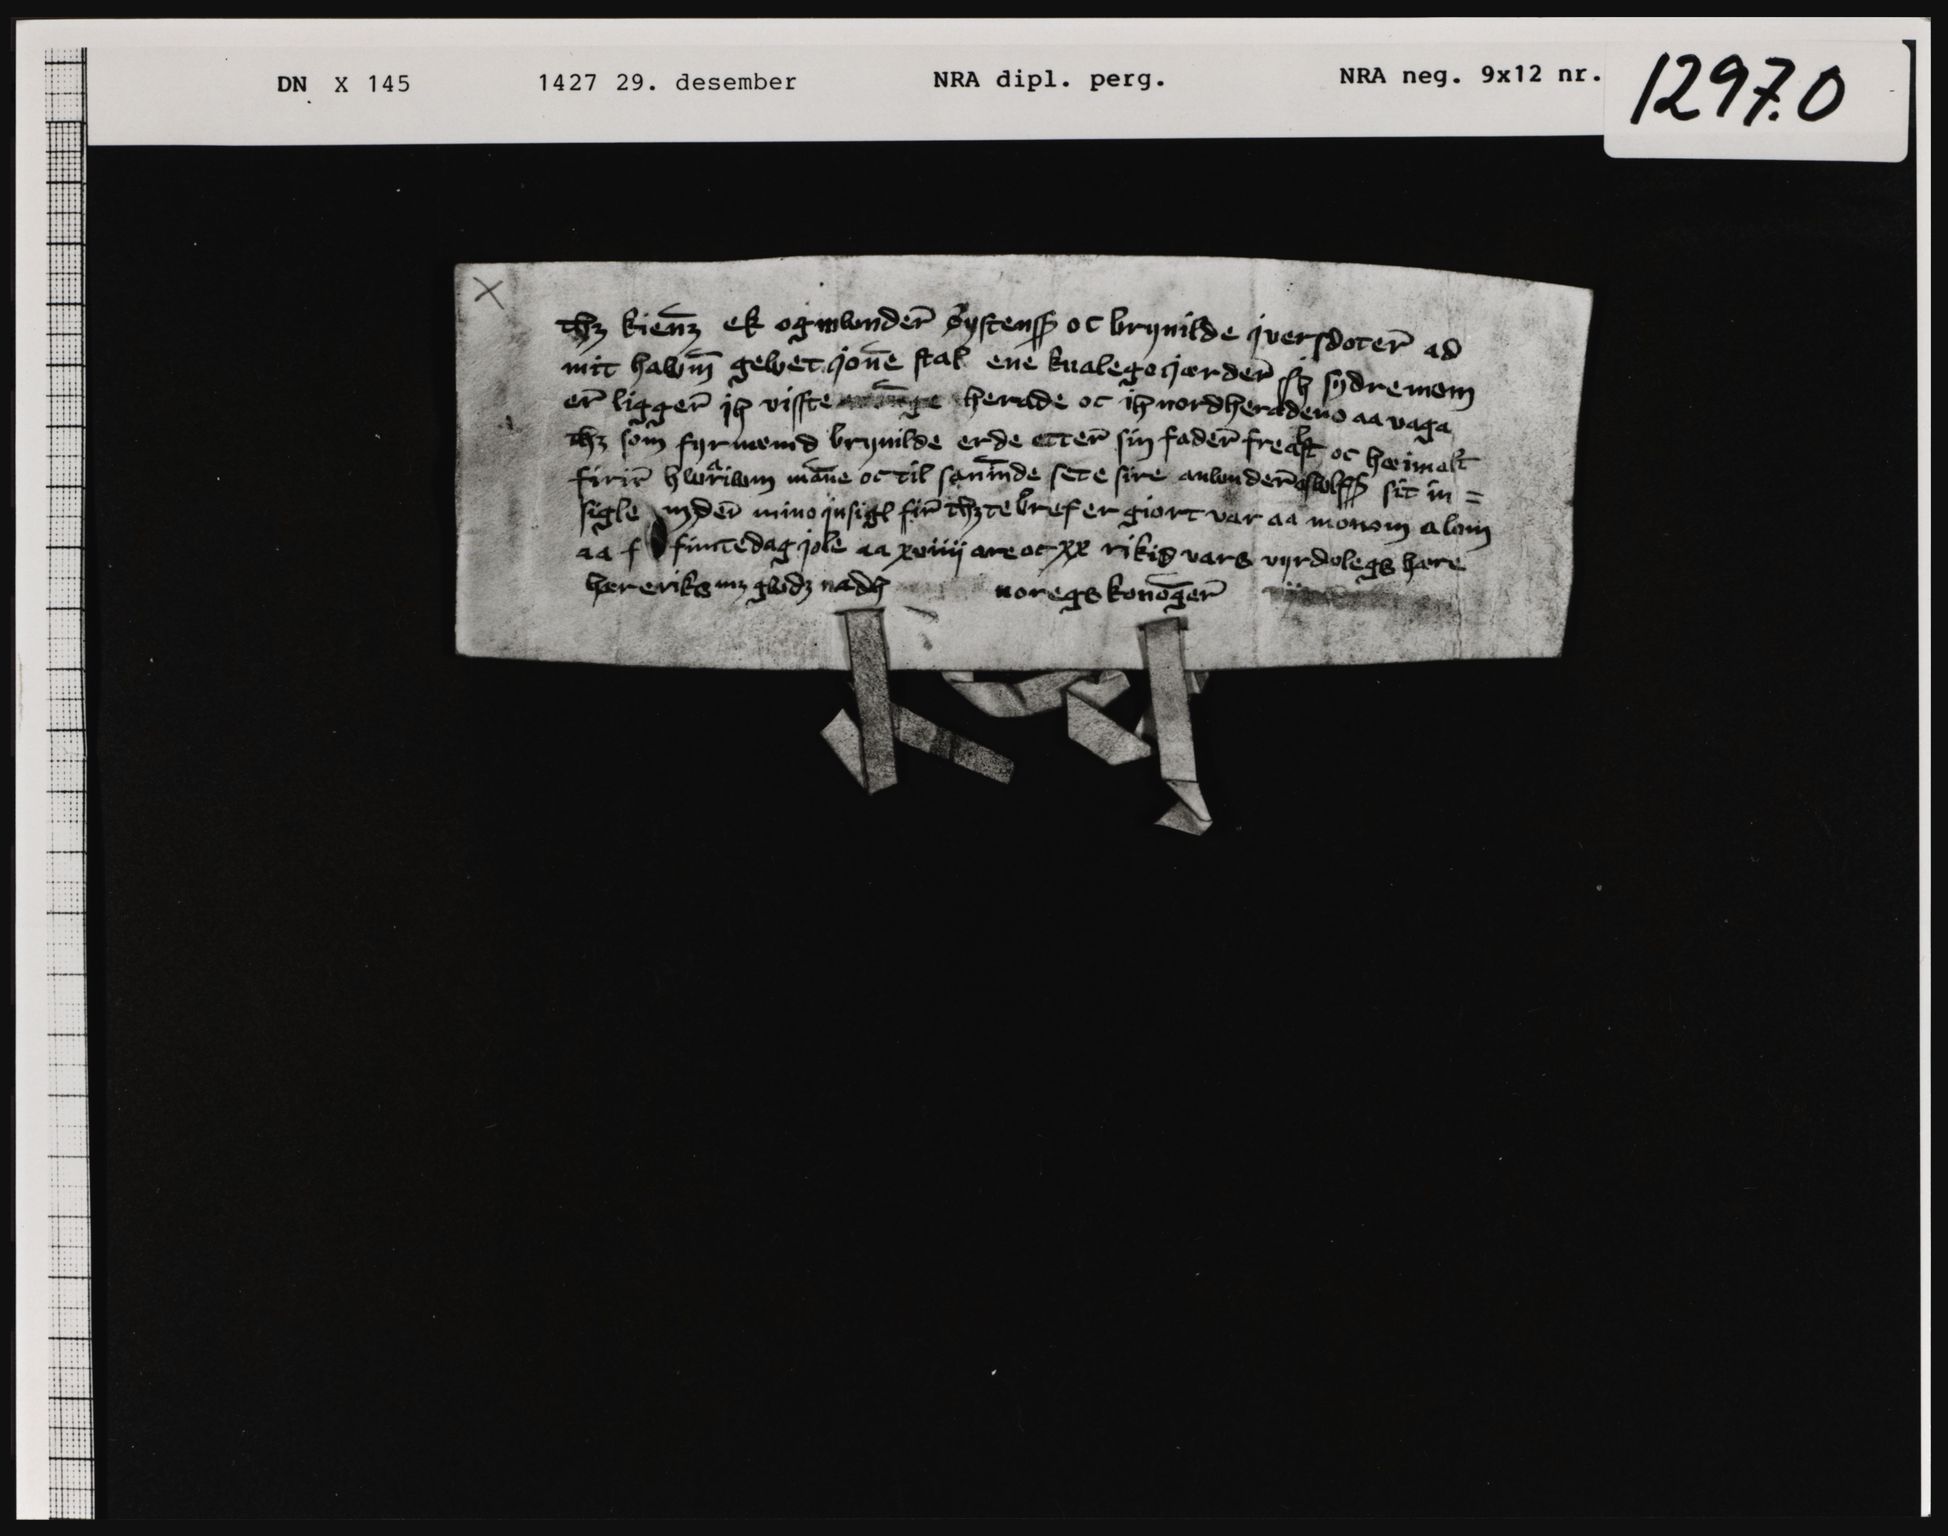 DN X 145 1427 29. desember NRA dipl. perg. NRA neg. 9x12 nr. 1297.0
thz kienz ek ogmwnder øystenss oc brynilde jversdoter ad
mit hawm gewet jone stal ene kualegojarder jh sydremom
er ligger jh visste herade oc ih nordheradeno aa vaga
thz som fyrnæmd brynilde erde etter sin fader frealst oc hæimolt
firir hwariwm mane oc til sanninde sete sire anwnder aswlfss sit in=
sigle mder mino jnsigl fir thzte bref er giort var aa monom a lom
aa f fimtedag jole aa xviiij are oc xx rikis vars vyrdolegs hære
hær eriks mz gwdz nadh noregs konoger